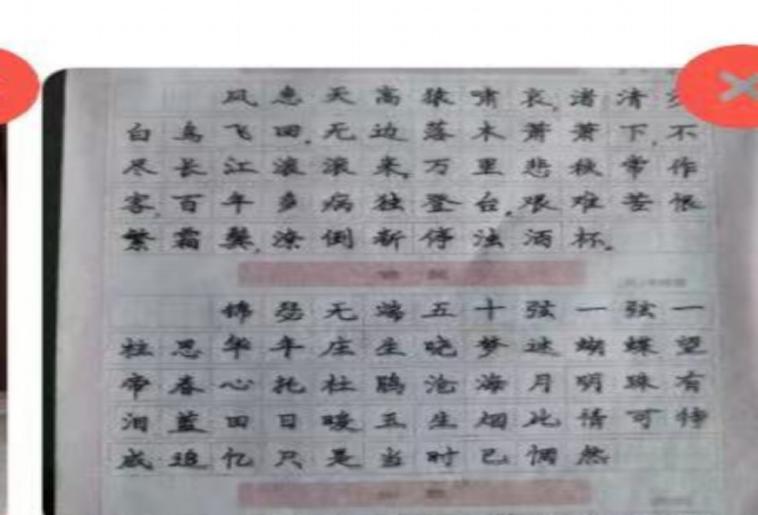 风急天高猿啸哀,渚清
白鸟飞回,无边落木萧萧下,不
尽长江滚滚来,万里悲秋常作
客,百年多病独登台,艰难苦恨
繁霜鬓,潦倒新停浊酒杯。
锦瑟
锦瑟无端五十弦一弦一
柱思华年庄生晓梦迷蝴蝶望
帝春心托杜鹃沧海月明珠有
泪蓝田日暖玉生烟此情可待
成追忆只是当时已惘然